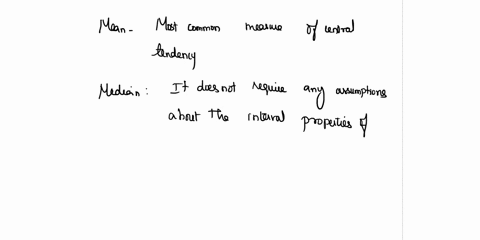 Mean - Most common measure of central
tendency
Median : It does not require any assumptions
about the interval properties of